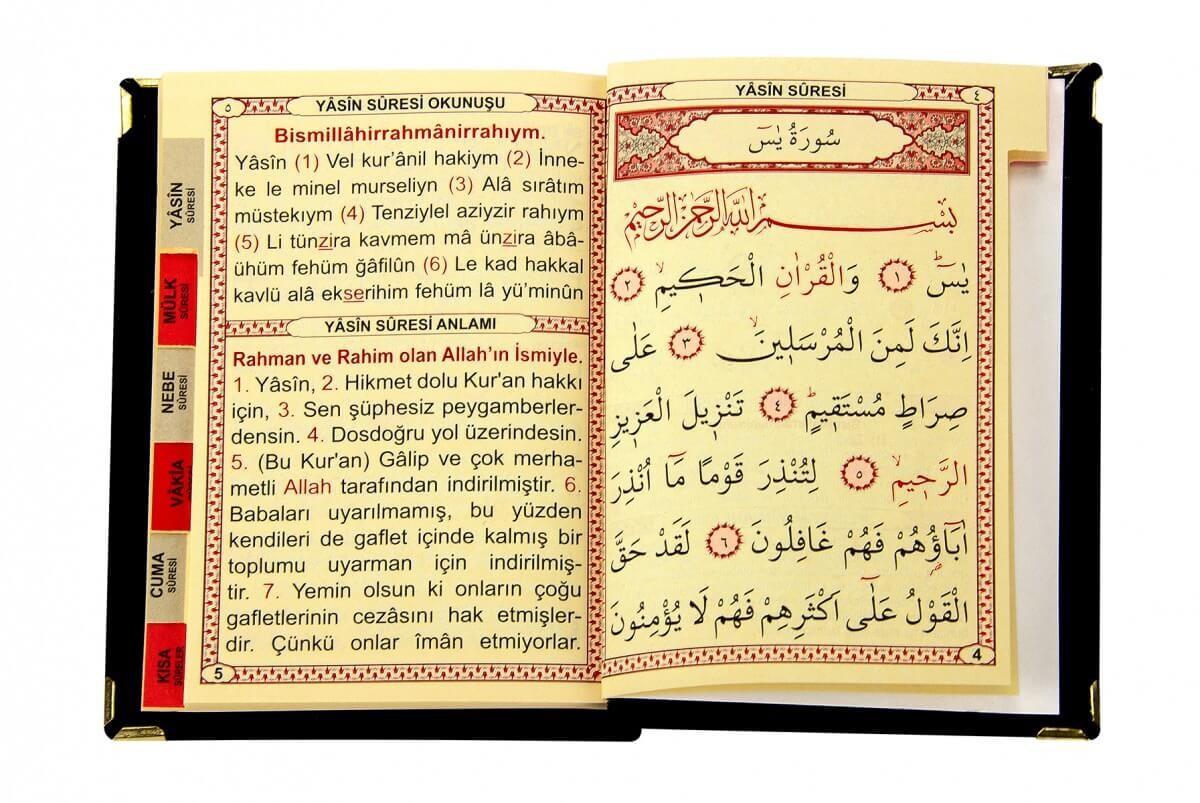 YÂSÎN SÛRESİ
٤
سُورَةُ يٰسٓ
بِسْمِ اللّٰهِ الرَّحْمٰنِ الرَّحِيمِ
يٰسٓ ۚ ١ وَالْقُرْاٰنِ الْحَكِيمِ ۙ ٢
اِنَّكَ لَمِنَ الْمُرْسَلِينَ ۙ ٣ عَلٰى
صِرَاطٍ مُسْتَقِيمٍ ۜ ٤ تَنْزِيلَ الْعَزِيزِ
الرَّحِيمِ ۙ ٥ لِتُنْذِرَ قَوْمًا مَٓا اُنْذِرَ
اٰبَٓاؤُ۬هُمْ فَهُمْ غَافِلُونَ ٦ لَقَدْ حَقَّ
الْقَوْلُ عَلٰٓى اَكْثَرِهِمْ فَهُمْ لَا يُؤْمِنُونَ
4
٥
YÂSÎN SÛRESİ OKUNUŞU
Bismillâhirrahmânirrahıym.
Yâsîn (1) Vel kur’ânil hakiym (2) İnne-
ke le minel murseliyn (3) Alâ sırâtım
müstekıym (4) Tenziylel aziyzir rahıym
(5) Li tünzira kavmem mâ ünzira âbâ-
ühüm fehüm ğâfilûn (6) Le kad hakkal
kavlü alâ ekserihim fehüm lâ yü’minûn
YÂSÎN SÛRESİ ANLAMI
Rahman ve Rahim olan Allah’ın İsmiyle.
1. Yâsîn, 2. Hikmet dolu Kur'an hakkı
için, 3. Sen şüphesiz peygamberler-
densin. 4. Dosdoğru yol üzerindesin.
5. (Bu Kur'an) Gâlip ve çok merha-
metli Allah tarafından indirilmiştir. 6.
Babaları uyarılmamış, bu yüzden
kendileri de gaflet içinde kalmış bir
toplumu uyarman için indirilmiş-
tir. 7. Yemin olsun ki onların çoğu
gafletlerinin cezâsını hak etmişler-
dir. Çünkü onlar îmân etmiyorlar.
5
YÂSÎN
SÛRESİ
MÜLK
SÛRESİ
NEBE
SÛRESİ
VÂKIA
CUMA
SÛRESİ
KISA
SÛRELER